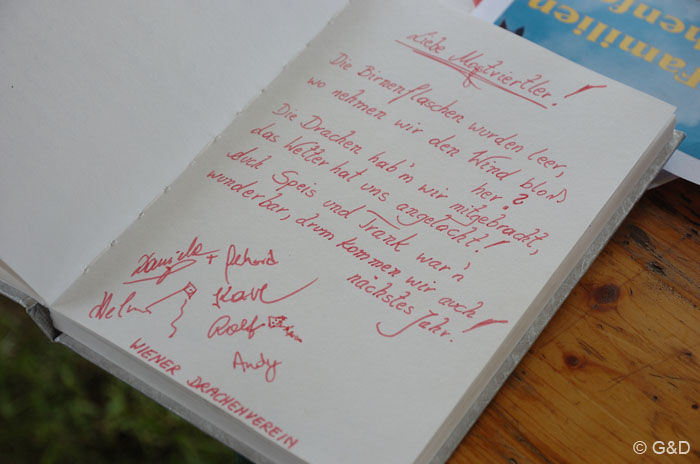 Liebe Mostviertler!
Die Birnenflaschen wurden leer,
wo nehmen wir den Wind bloß
her?
Die Drachen hab'n wir mitgebracht,
das Wetter hat uns angelacht!
duch Speis und Trank war'n
wunderbar, drum kommen wir auch
nächstes
Jahr!
Daniela + Gehard
Helmut Karl
Rolf
Andy
WIENER DRACHENVEREIN
Familien
© G&D